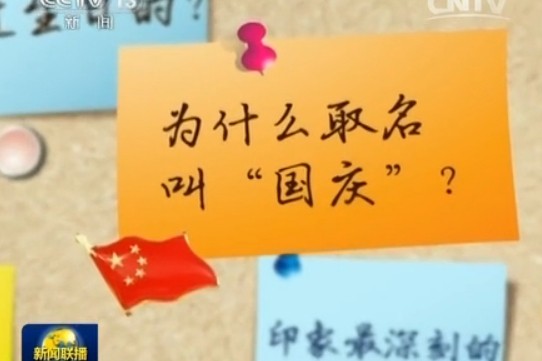 CCTV 13
新闻
CNTV
为什么取名
叫“国庆”？
印家最深刻的
新闻联播